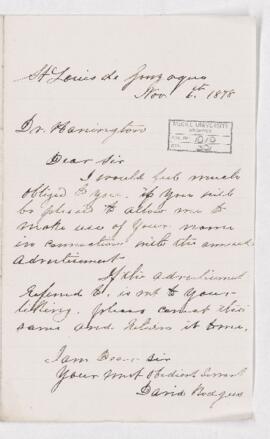 St Louis de Gonzague
Nov. 6th 1878
McGILL UNIVERSITY
ARCHIVES
ACC. NO. 1010
REF.
Dr. Hanington
Dear Sir
I would be much
obliged to you. if you will
be pleased to allow me to
make use of your name
in connection with the annexed
Advertisement
If the advertisement
Referred to. is not to your
liking. please correct the
same and Return it to me.
I am Dear Sir
Your most Obedient Servant
David Rodgers